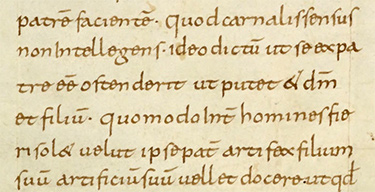 patrē facientē · quod carnalis sensus
non intellegens · ideo dictū ut se ex pa
tre eē ostenderit ut putet & dm̄
et filiū · quomodo Int̄ homines fie
ri sol& velut ipse pat̄ artifex filium
suū artificiū suū vellet docere · ut qd̄